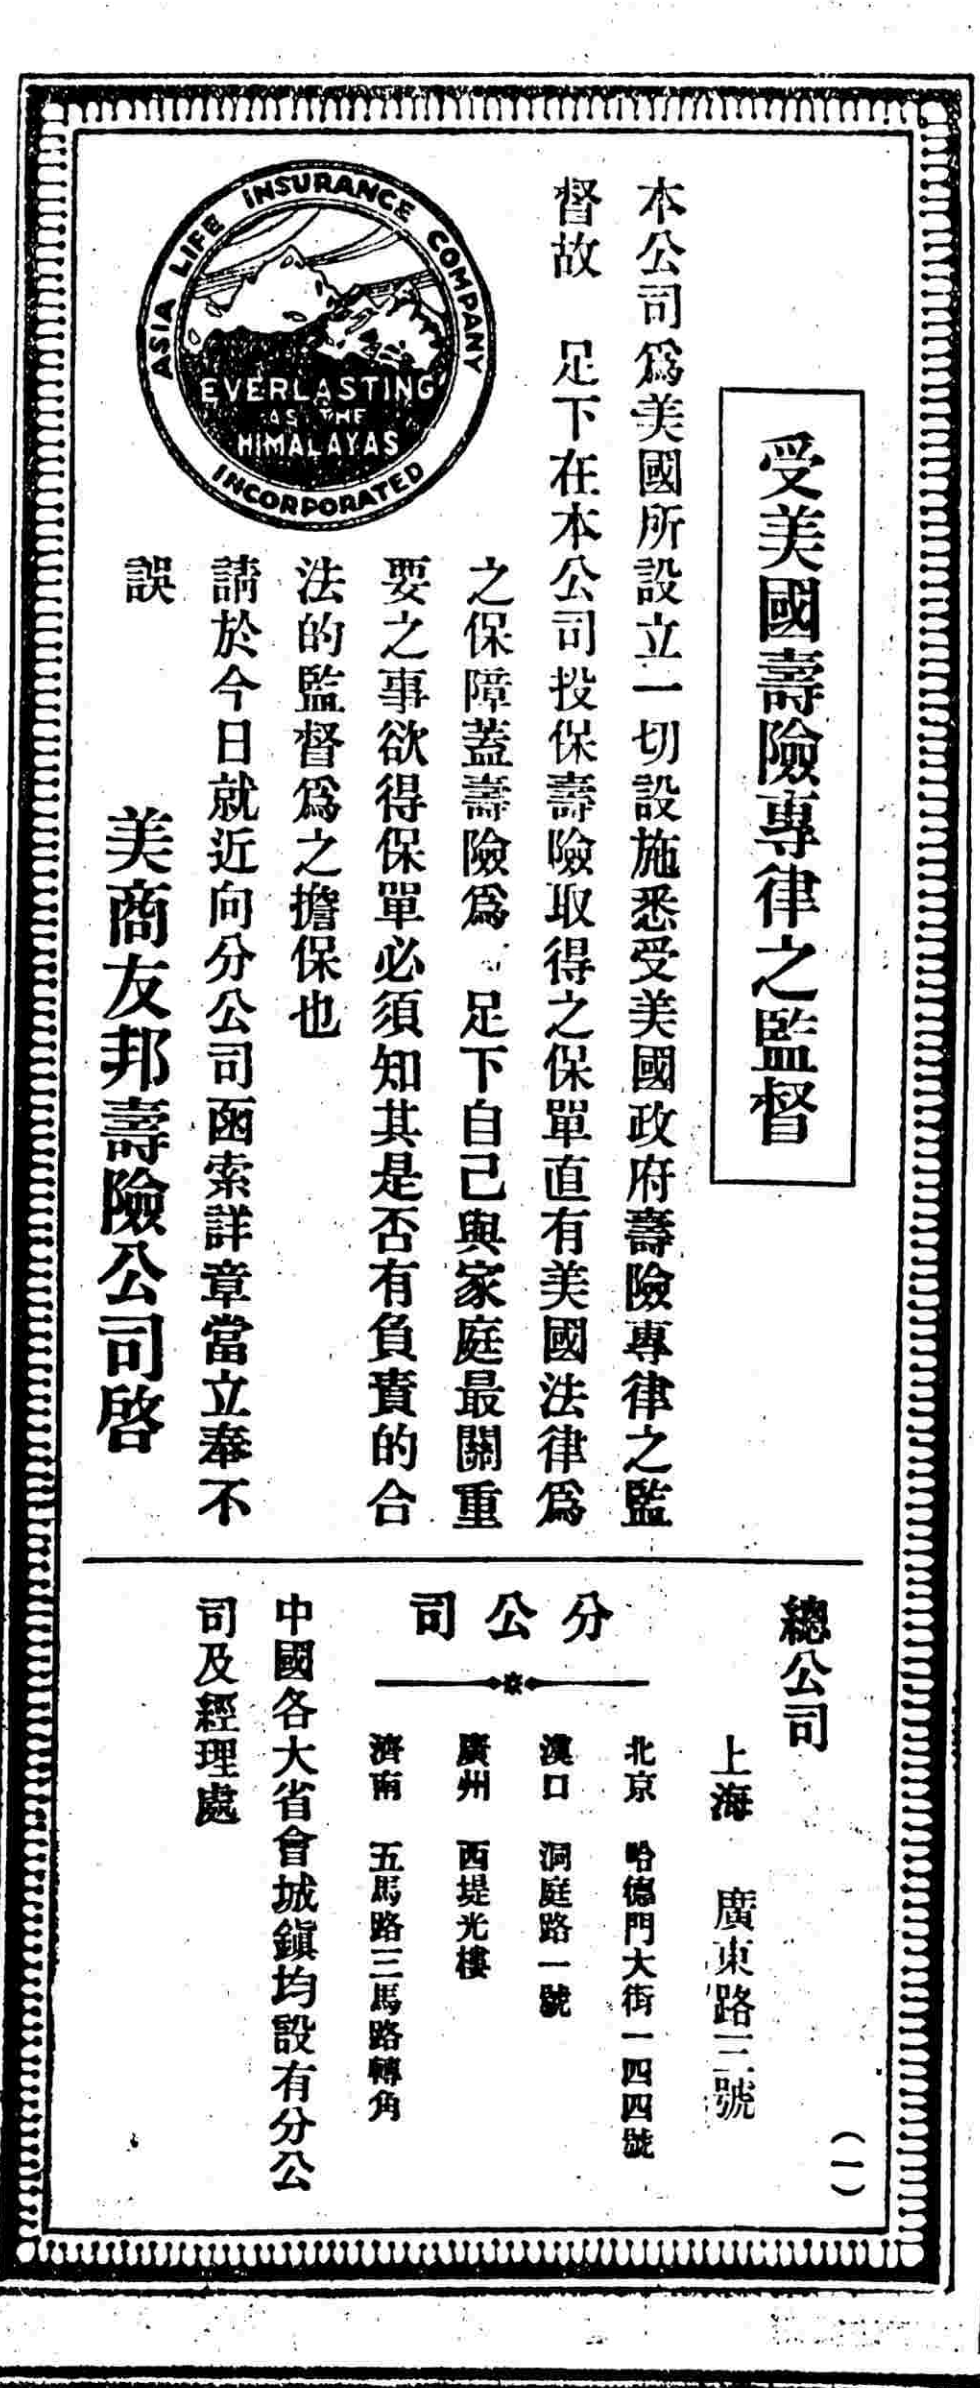 受美國壽險專律之監督
本公司爲美國所設立一切設施悉受美國政府壽險專律之監
督故　足下在本公司投保壽險取得之保單直有美國法律爲
之保障蓋壽險爲　足下自己與家庭最關重
要之事欲得保單必須知其是否有負責的合
法的監督爲之擔保也
請於今日就近向分公司函索詳章當立奉不
誤
美商友邦壽險公司啓
ASIA LIFE INSURANCE COMPANY
INCORPORATED
EVERLASTING
AS THE
HIMALAYAS
（一）
總公司
上海　廣東路三號
分公司
北京　哈德門大街一四四號
漢口　洞庭路一號
廣州　西堤光樓
濟南　五馬路三馬路轉角
中國各大省會城鎭均設有分公
司及經理處